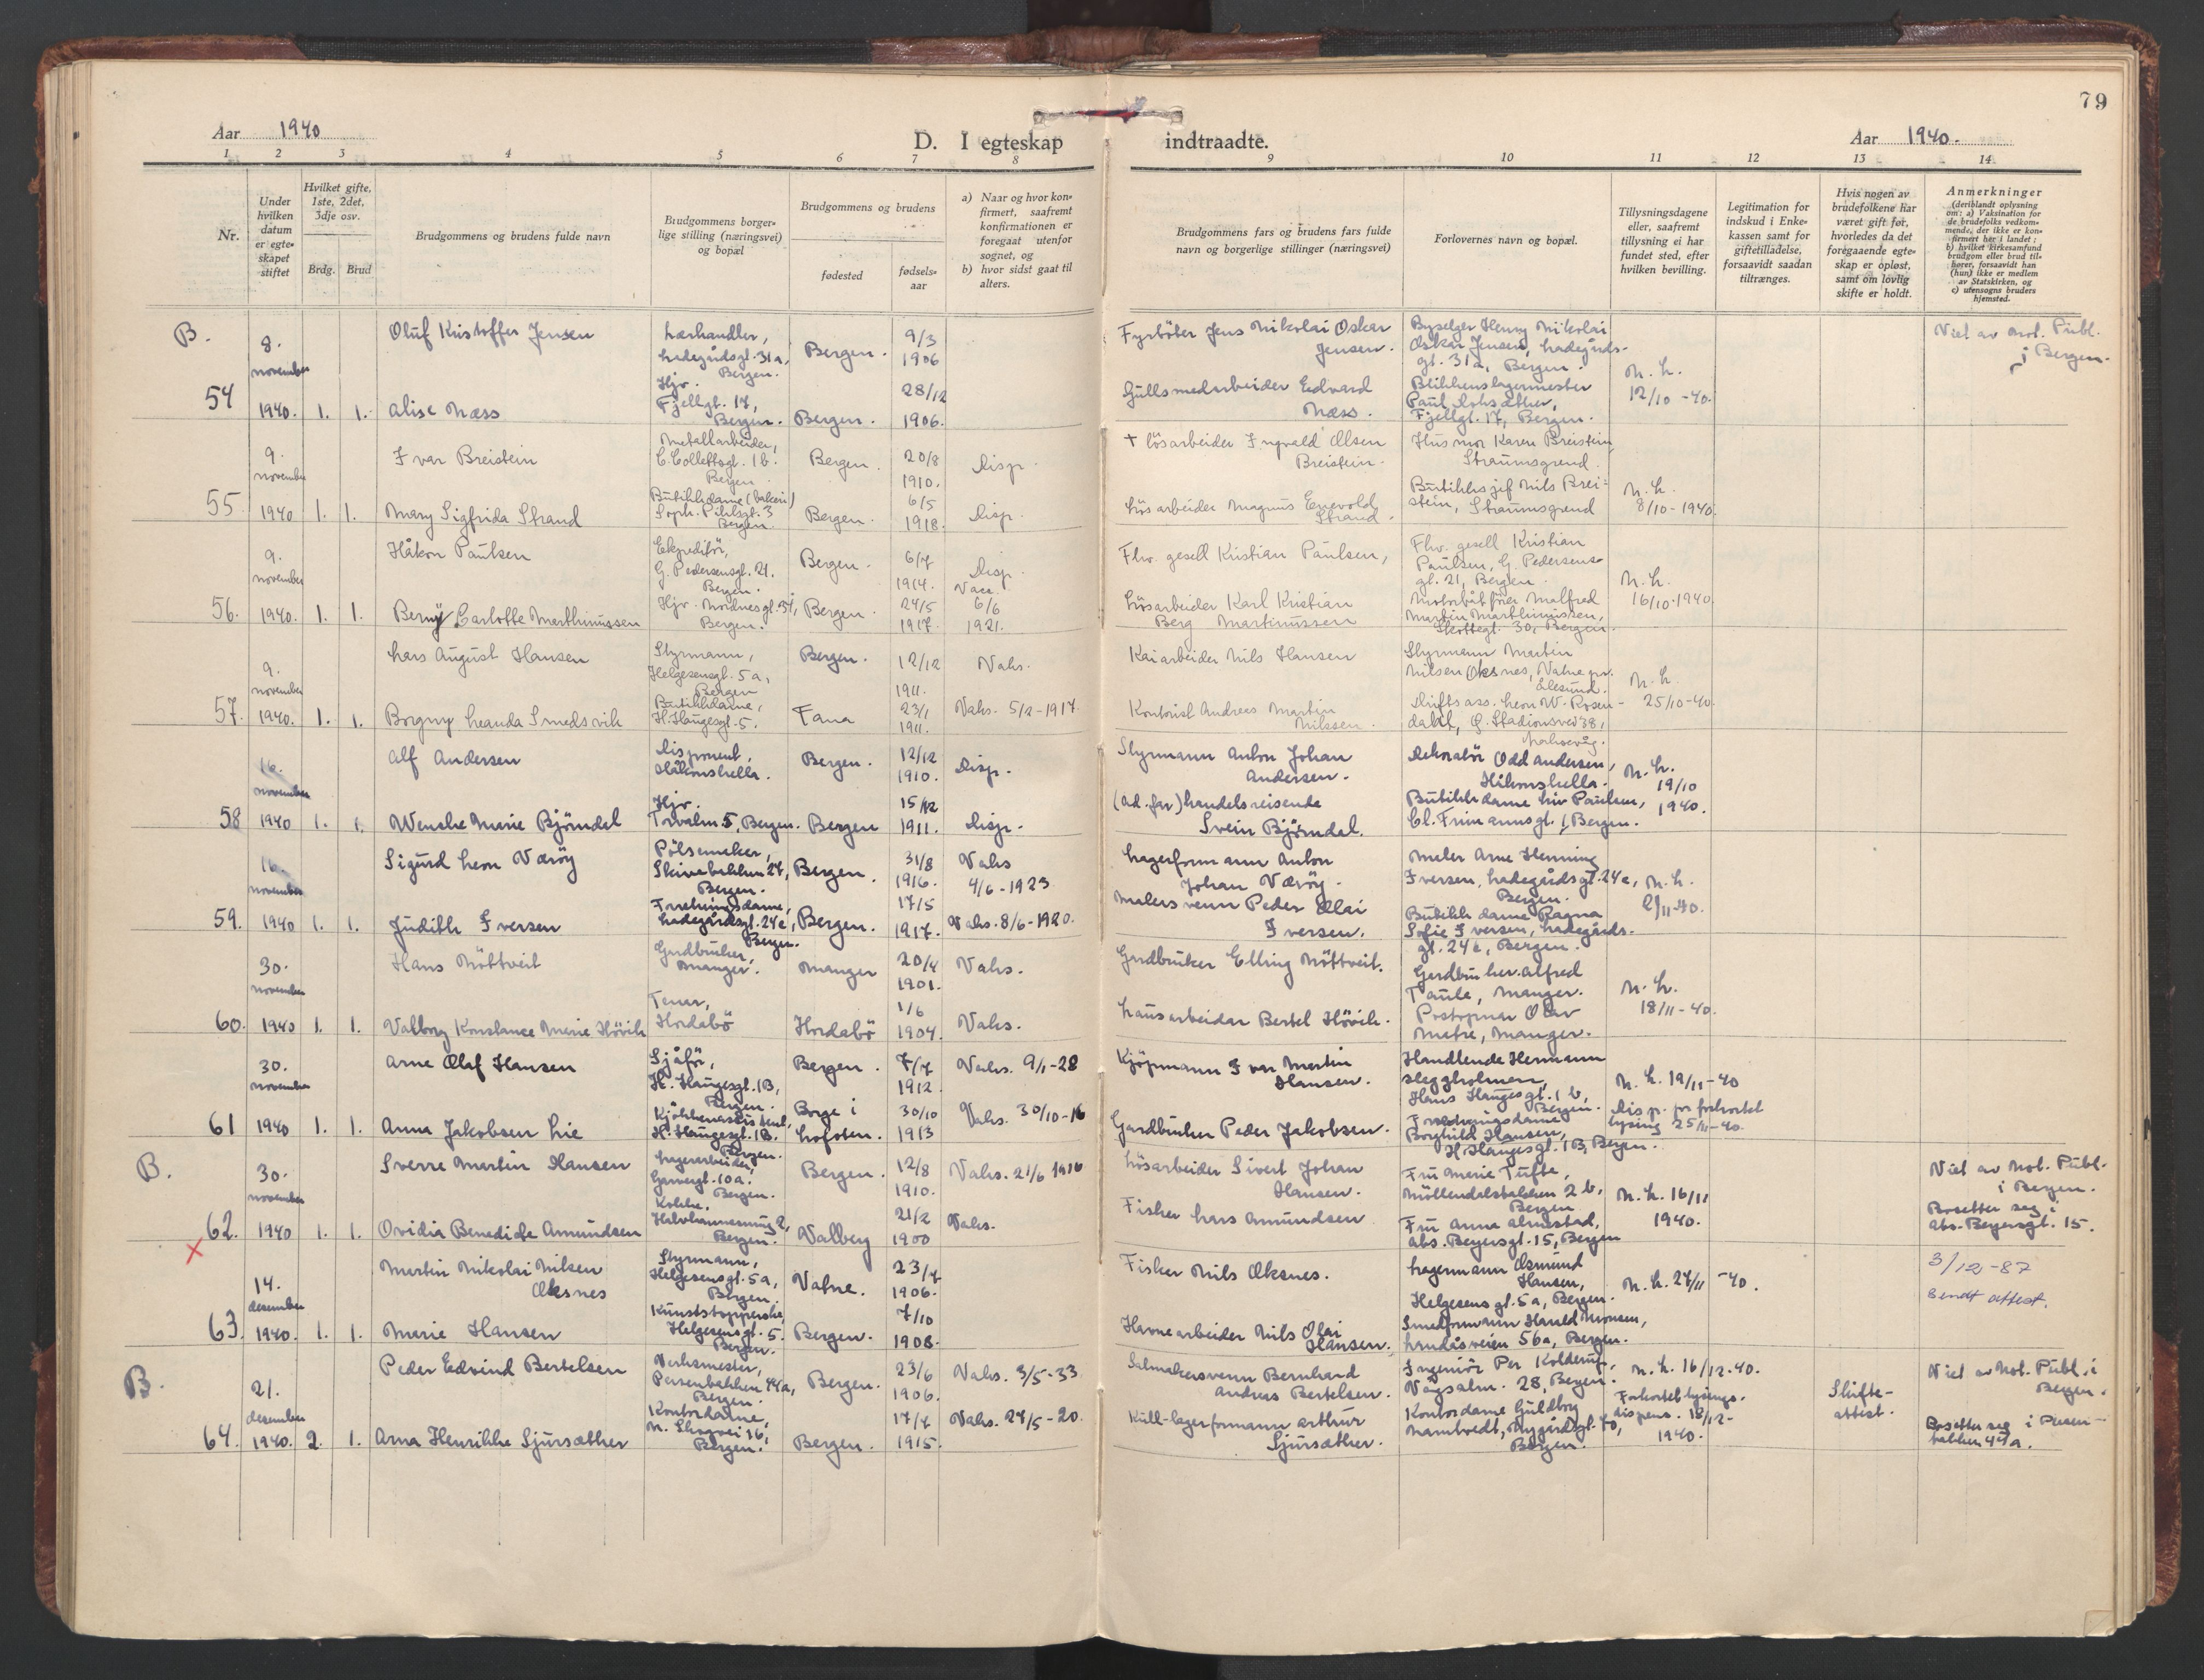 79
Aar 1940
D. I egteskap
indtraadte.
Aar 1940.
1 2 3 4 5 6 7 8 9 10 11 12 13 14
Nr.
Under hvilken datum er egteskapet stiftet
Hvilket gifte, 1ste, 2det, 3dje osv.
Brdg.
Brud
Brudgommens og brudens fulde navn
Brudgommens borgerlige stilling (næringsvei) og bopæl
Brudgommens og brudens
fødested
fødselsaar
a) Naar og hvor konfirmert, saafremt konfirmationen er foregaat utenfor sognet, og
b) hvor sidst gaat til alters.
Brudgommens fars og brudens fars fulde navn og borgerlige stillinger (næringsvei)
Forlovernes navn og bopæl.
Tillysningsdagene eller, saafremt tillysning ei har fundet sted, efter hvilken bevilling.
Legitimation for indskud i Enkekassen samt for giftetilladelse, forsaavidt saadan tiltrænges.
Hvis nogen av brudefolkene har været gift før, hvorledes da det foregaaende egteskap er opløst, samt om lovlig skifte er holdt.
Anmerkninger
(deriblandt oplysning om: a) Vaksination for de brudefolks vedkommende, der ikke er konfirmert her i landet; b) hvilket kirkesamfund brudgom eller brud tilhører, forsaavidt han (hun) ikke er medlem av Statskirken, og c) utensogns bruders hjemsted.
B.
54
8. november 1940. 1. 1.
Oluf Kristoffer Jensen
Lærhandler, Ladegårdsgt. 31a, Bergen.
Bergen. 9/3 1906
Fyrböter Jens Nikolai Oskar Jensen.
Byselger Henry Nikolai Oskar Jensen, Ladegårdsgt. 31a, Bergen.
N. h. 12/10 -40.
Viet av Not. Publ. i Bergen.
Alise Næss
Hjv. Fjellgt. 17, Bergen.
Bergen. 28/12 1906.
Gullsmedarbeider Edvard Næss.
Blikkenslagermester Paul Fjellgt. 17, Bergen.
55.
9. november 1940 1. 1.
Ivar Breistein
Metallarbeider, C. Collettsgt. 1b. Bergen
Bergen. 20/8 1910. Disp.
† Lösarbeider Ingvald Olsen Breistein.
Husmor Karen Breistein, Straumsgrend.
N. h. 8/10 - 1940.
Mary Sigfrida Strand
Butikkdame (bakeri) Soph. Pihlsgt. 3 Bergen.
Bergen. 6/5 1918. Disp.
Lösarbeider Magnus Enevold Strand.
Butikksjef Nils Breistein, Straumsgrend
56.
9. november 1940. 1. 1.
Håkon Paulsen
Ekspeditör, G. Pedersensgt. 21. Bergen.
Bergen. 6/7 1914. Disp.
Fhv. gesell Kristian Paulsen,
Fhv. gesell Kristian Paulsen, G. Pedersensgt. 21, Bergen.
N. h. 16/10-1940.
Berny Carlotte Marthinussen
Hjv. Nordnesgt. 34, Bergen.
Bergen. 24/5 1917. Vacc. 6/6 1921.
Lösarbeider Karl Kristian Berg Martinussen
Motorbåtförer Malfred Martin Marthinussen, Skottegt. 30, Bergen.
57.
9. november 1940. 1. 1.
Lars August Hansen
Styrmann, Helgesensgt. 5a, Bergen
Bergen. 12/12 1911. Vaks.
Kaiarbeider Nils Hansen
Styrmann Martin Nilsen Oksnes, Vatne pr. Ålesund.
N. h. 25/10-40.
Borgny Leanda Smedsvik
Butikkdame, H. Haugesgt. 5.
Fana 23/1 1911. Vaks. 5/2-1917.
Kontorist Andreas Martin Nilssen.
Driftsass. Leon W. Rosendahl, G. Stadionsvei 38,
58
16. november 1940 1. 1.
Alf Andersen
Disponent, Håkonshella.
Bergen. 12/12 1910. Disp.
Styrmann Anton Johan Andersen.
Dekoratör Odd Andersen, Håkonshella.
N. h. 19/10 1940.
Wenche Marie Bjørndal
Hjv. 5, Bergen.
Bergen 15/12 1911. Disp.
(Ad. far) Handelsreisende Svein Bjørndal.
Butikkdame Liv Paulsen, Cl. Frimannsgt. 1, Bergen.
59.
16. november 1940 1. 1.
Sigurd Leon Værøy
Pölsemaker, Skivebakken 24, Bergen.
Bergen. 31/8 1916. Vaks 4/6 - 1923
Lagerformann Anton Johan Værøy.
Maler Arne Henning Iversen, Ladegårdsgt. 24e, Bergen.
N. h. 2/11-40.
Judith Iversen
Forretningsdame, Ladegårdsgt. 24e, Bergen.
Bergen. 17/5 1917. Vaks. 8/6-1920.
Malersvenn Peder Olai Iversen.
Butikkdame Ragna Sofie Iversen, Ladegårdsgt. 24e, Bergen.
60.
30. november 1940 1. 1.
Hans Nöttveit
Gardbruker, Manger.
Manger 20/4 1901. Vaks.
Gardbruker Elling Nöttveit.
Gardbruker Alfred Taule, Manger.
N. h. 18/11-40.
Valborg Konstance Marie Hövik
Hordabö
Hordabö 1/6 1904. Vaks.
Lausarbeidar Bertel Hövik.
Postopnar Olav Matre, Manger.
61
30. november 1940 1. 1.
Arne Olaf Hansen
Sjåför, H. Haugesgt. 1B, Bergen.
Bergen. 7/7 1912. Vaks. 9/1-28
Kjöpmann Ivar Martin Hansen.
Handlende Hermann Skeggholmen, Hans Haugesgt. 1b, Bergen.
N. h. 19/11-40
Disp. for forkortet lysing 25/11-40.
Anna Jakobsen Lie
Kjökkenassistent, H. Haugesgt. 1B. Bergen.
Borge i Lofoten. 30/10 1913 Vaks. 30/10-16
Gardbruker Peder Jakobsen.
Forretningsdame Borghild Hansen, H. Haugesgt. 1B, Bergen.
B.
62.
30. november 1940 1. 1.
Sverre Martin Hansen
Lagerarbeider, Garvergt. 10a. Bergen.
Bergen. 12/8 1910. Vaks. 21/6 1916
Lösarbeider Sivert Johan Hansen.
Fru Marie Tufte, Möllendalsbakken 2b, Bergen
N. h. 16/11 1940.
Viet av Not. Publ. i Bergen.
Bosetter seg i Abs. Beyersgt. 15.
Ovidia Benedicte Amundsen
Kokke, Bergen.
Valberg 21/2 1900 Vaks.
Fisker Lars Amundsen
Fru Anna Almestad, Abs. Beyersgt. 15, Bergen
x
63.
14. desember 1940. 1. 1.
Martin Nikolai Nilsen Oksnes
Styrmann, Helgesensgt. 5a, Bergen.
Vatne. 23/7 1906.
Fisker Nils Oksnes.
Lagermann Osmund Hansen, Helgesensgt. 5a, Bergen.
N. h. 27/11 -40.
3/12-87
Sendt attest.
Marie Hansen
Kunststopperske, Helgesensgt. 5. Bergen.
Bergen. 7/10 1908.
Havnearbeider Nils Olai Hansen.
Smedformann Harald Monsen, Landåsveien 56a, Bergen.
B.
64.
21. desember 1940. 2. 1.
Peder Edvind Bertelsen
Verksmester, Persenbakken 44a, Bergen.
Bergen. 23/6 1906. Vaks. 3/5-33
Salmakersvenn Bernhard Andreas Bertelsen.
Ingeniör Per Kolderup, Vågsalm. 28, Bergen.
N. h. 16/12-40.
Forkortet lysings-dispens. 18/12-1940.
Skifte-attest.
Viet av Not. Publ. i Bergen.
Bosetter seg i Persenbakken 44a.
Arna Henrikke Sjursæther
Kontordame, N. Skogvei 16, Bergen.
Bergen. 17/7 1915. Vaks. 27/5-20.
Kull-lagerformann Arthur Sjursæther.
Kontordame Guldborg Namtvedt, Nygårdsgt. 70, Bergen.